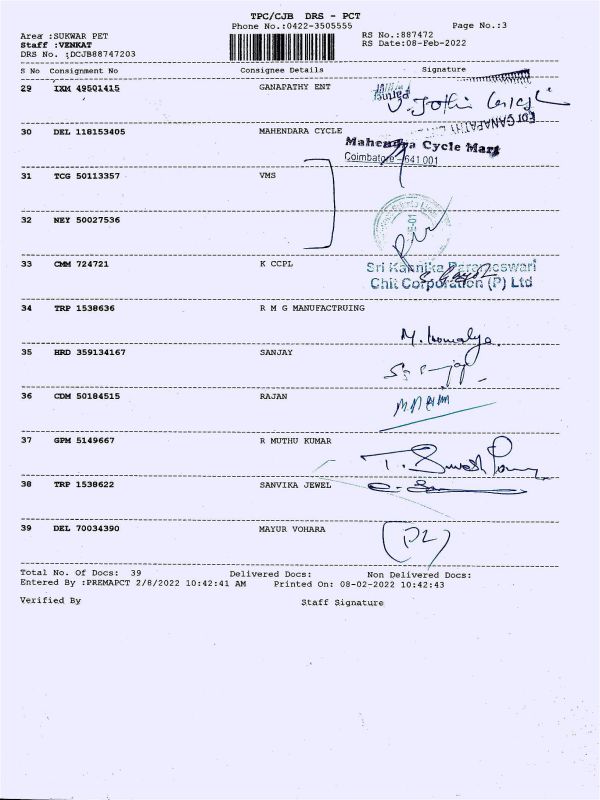 TPC/CJB DRS - PCT
Phone No.:0422-3505555 Page No.:3
Area :SUKWAR PET RS No.:887472
Staff :VENKAT RS Date:08-Feb-2022
DRS No. :DCJB88747203
S No Consignment No Consignee Details Signature
29 IXM 49501415 GANAPATHY ENT
For GANAPATHY
30 DEL 118153405 MAHENDARA CYCLE
Mahendra Cycle Mart
Coimbatore - 641 001
31 TCG 50113357 VMS
32 NEY 50027536
33 CMM 724721 K CCPL
Sri Kannika Parameswari
Chit Corporation (P) Ltd
34 TRP 1538636 R M G MANUFACTRUING
35 HRD 359134167 SANJAY
36 CDM 50184515 RAJAN
37 GPM 5149667 R MUTHU KUMAR
38 TRP 1538622 SANVIKA JEWEL
39 DEL 70034390 MAYUR VOHARA
Total No. Of Docs: 39 Delivered Docs: Non Delivered Docs:
Entered By :PREMAPCT 2/8/2022 10:42:41 AM Printed On: 08-02-2022 10:42:43
Verified By Staff Signature